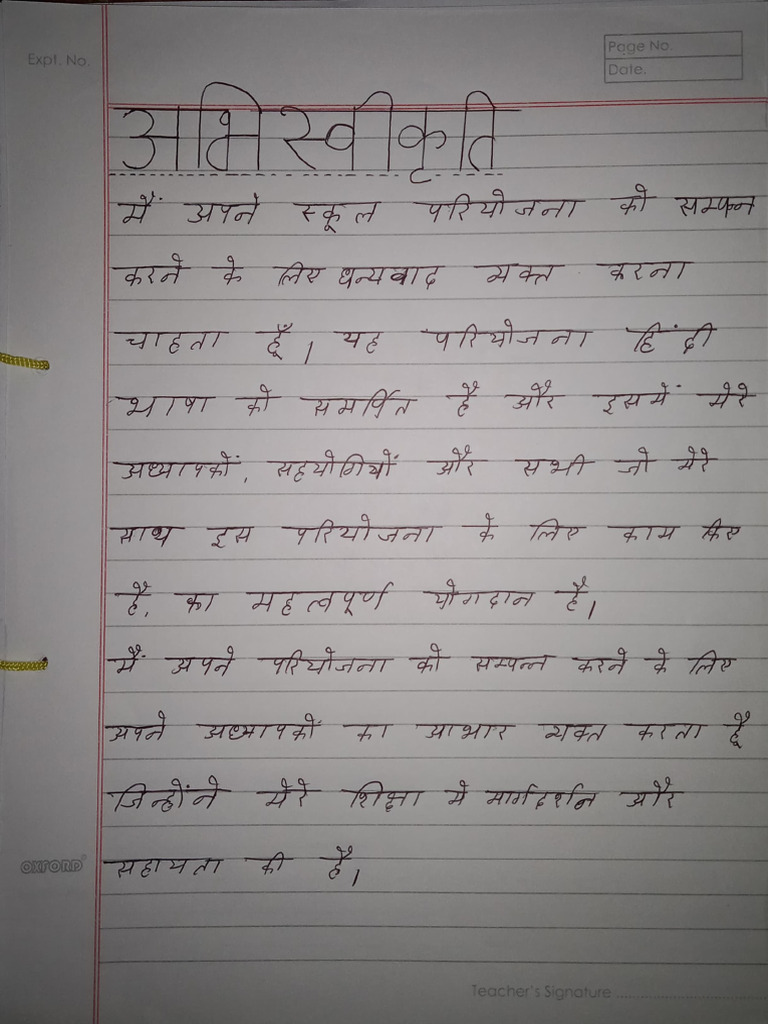 Expt. No.
Page No.
Date.
अभिस्वीकृति
मैं अपने स्कूल परियोजना को सम्पन्न
करने के लिए धन्यवाद व्यक्त करना
चाहता हूँ। यह परियोजना हिंदी
भाषा को समर्पित है और इसमें मेरे
अध्यापकों, सहयोगियों और सभी जो मेरे
साथ इस परियोजना के लिए काम किए
है, का महत्वपूर्ण योगदान है।
मैं अपने परियोजना को सम्पन्न करने के लिए
अपने अध्यापकों का आभार व्यक्त करता हूँ
जिन्होंने मेरे शिक्षा मे मार्गदर्शन और
सहायता की है।
OXFORD
Teacher's Signature